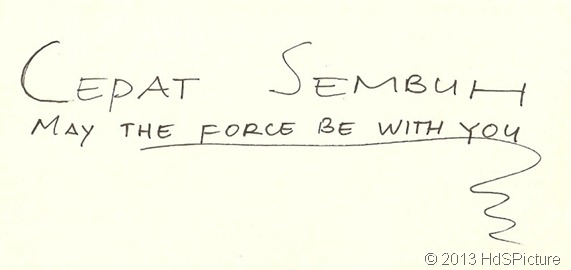 CEPAT SEMBUH
MAY THE FORCE BE WITH YOU
© 2013 HdSPicture